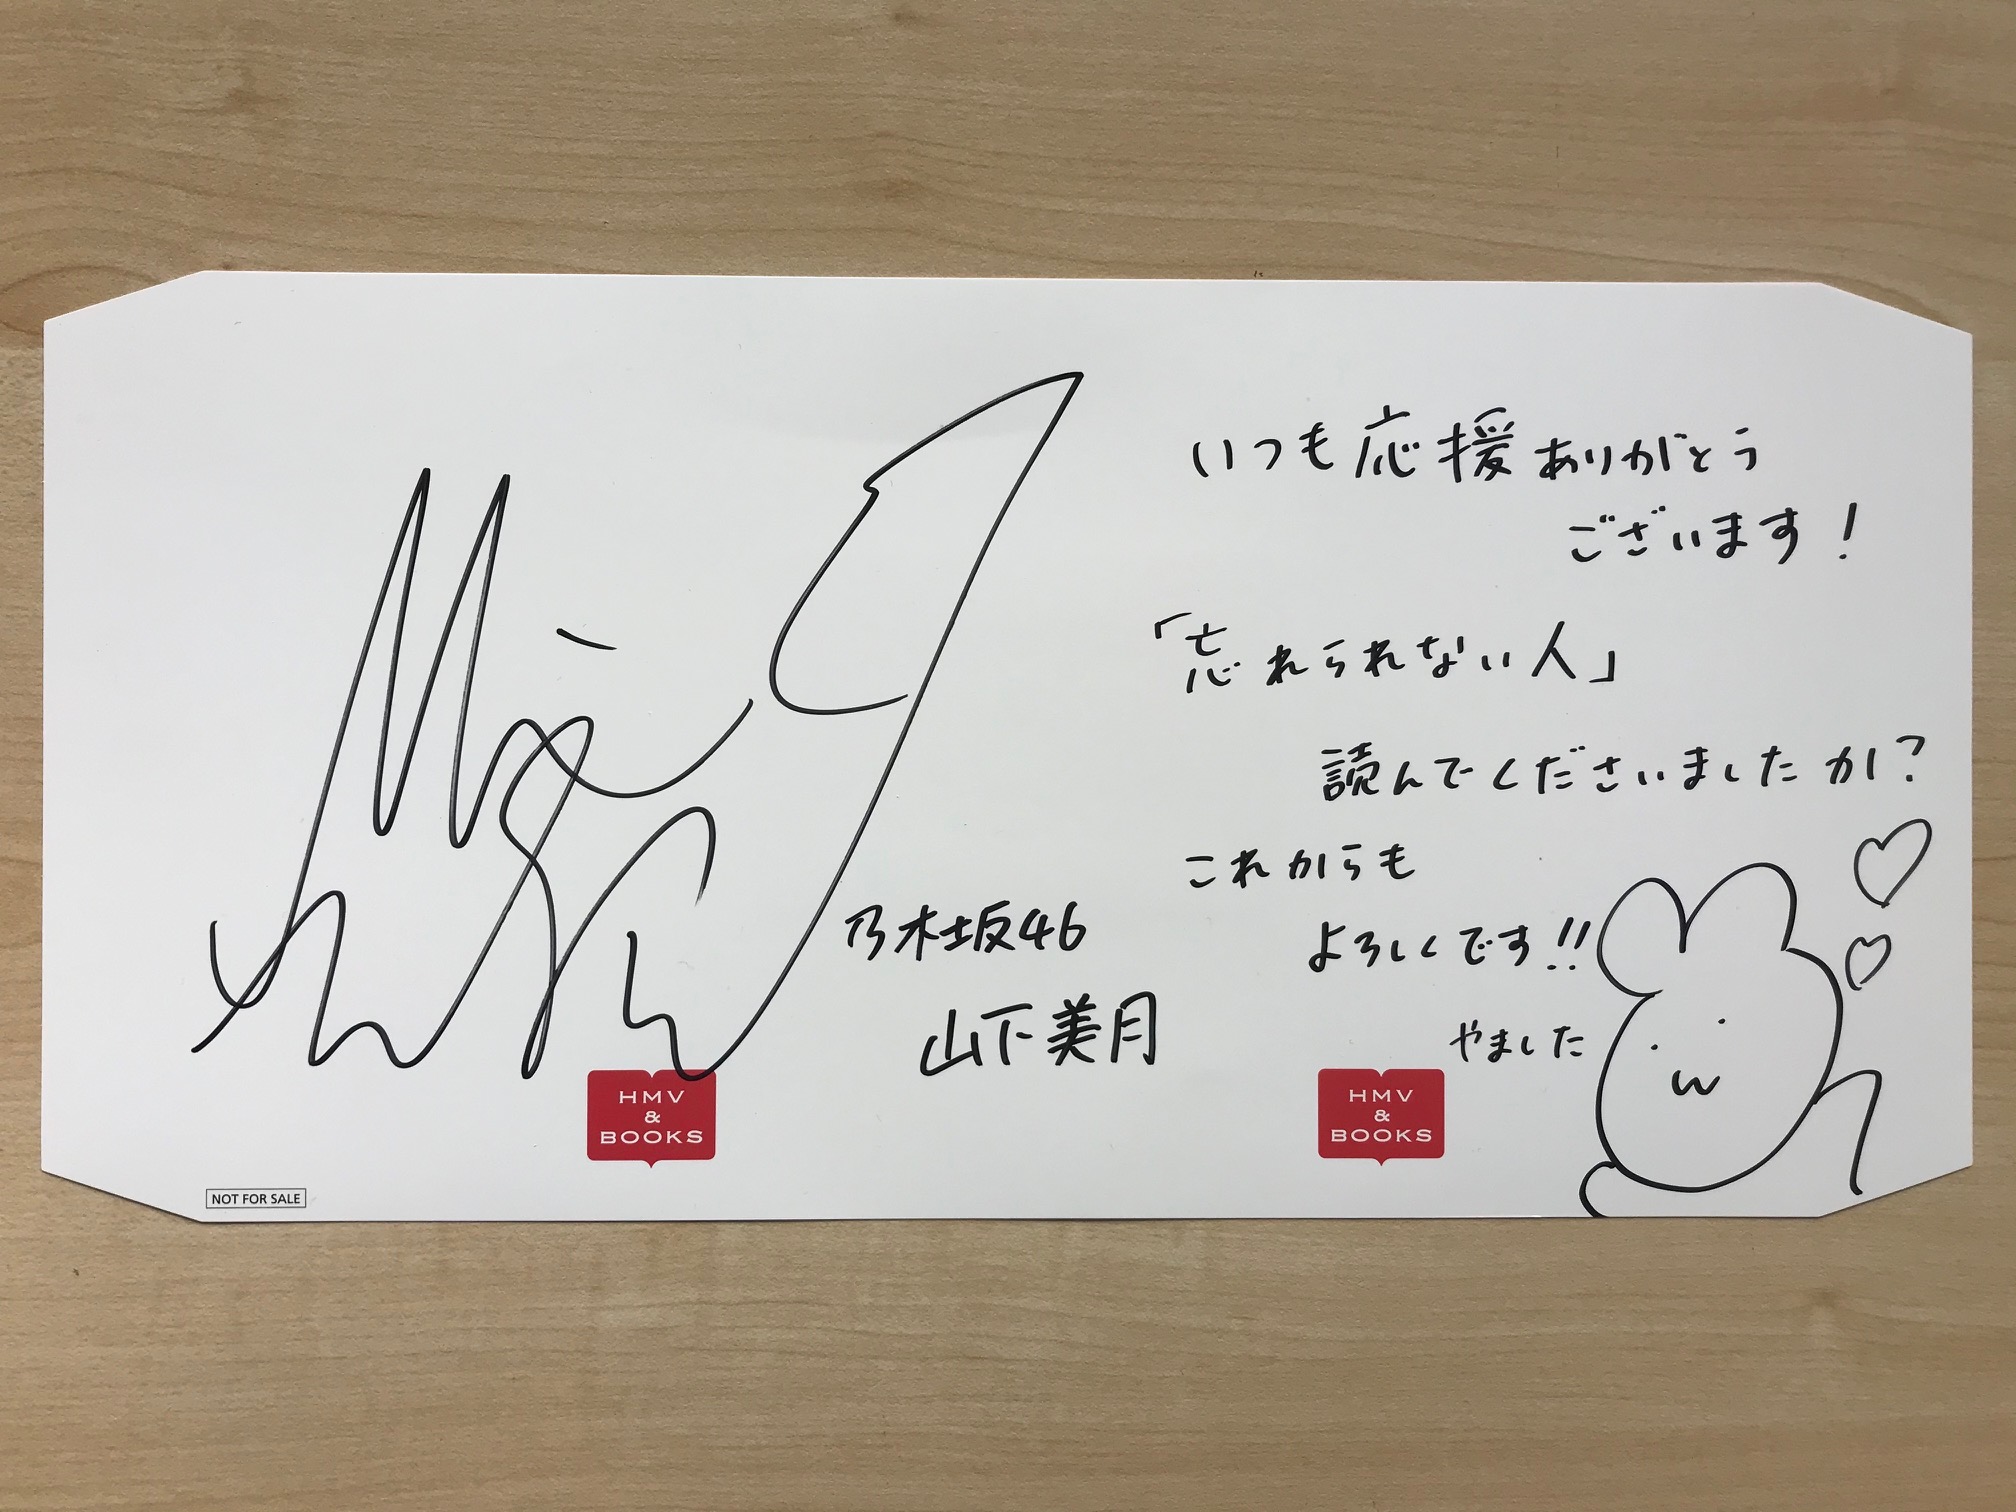 乃木坂46
山下美月
いつも応援ありがとう
ございます!
「忘れられない人」
読んでくださいましたか?
これからも
よろしくです!!
やました
HMV
&
BOOKS
HMV
&
BOOKS
NOT FOR SALE